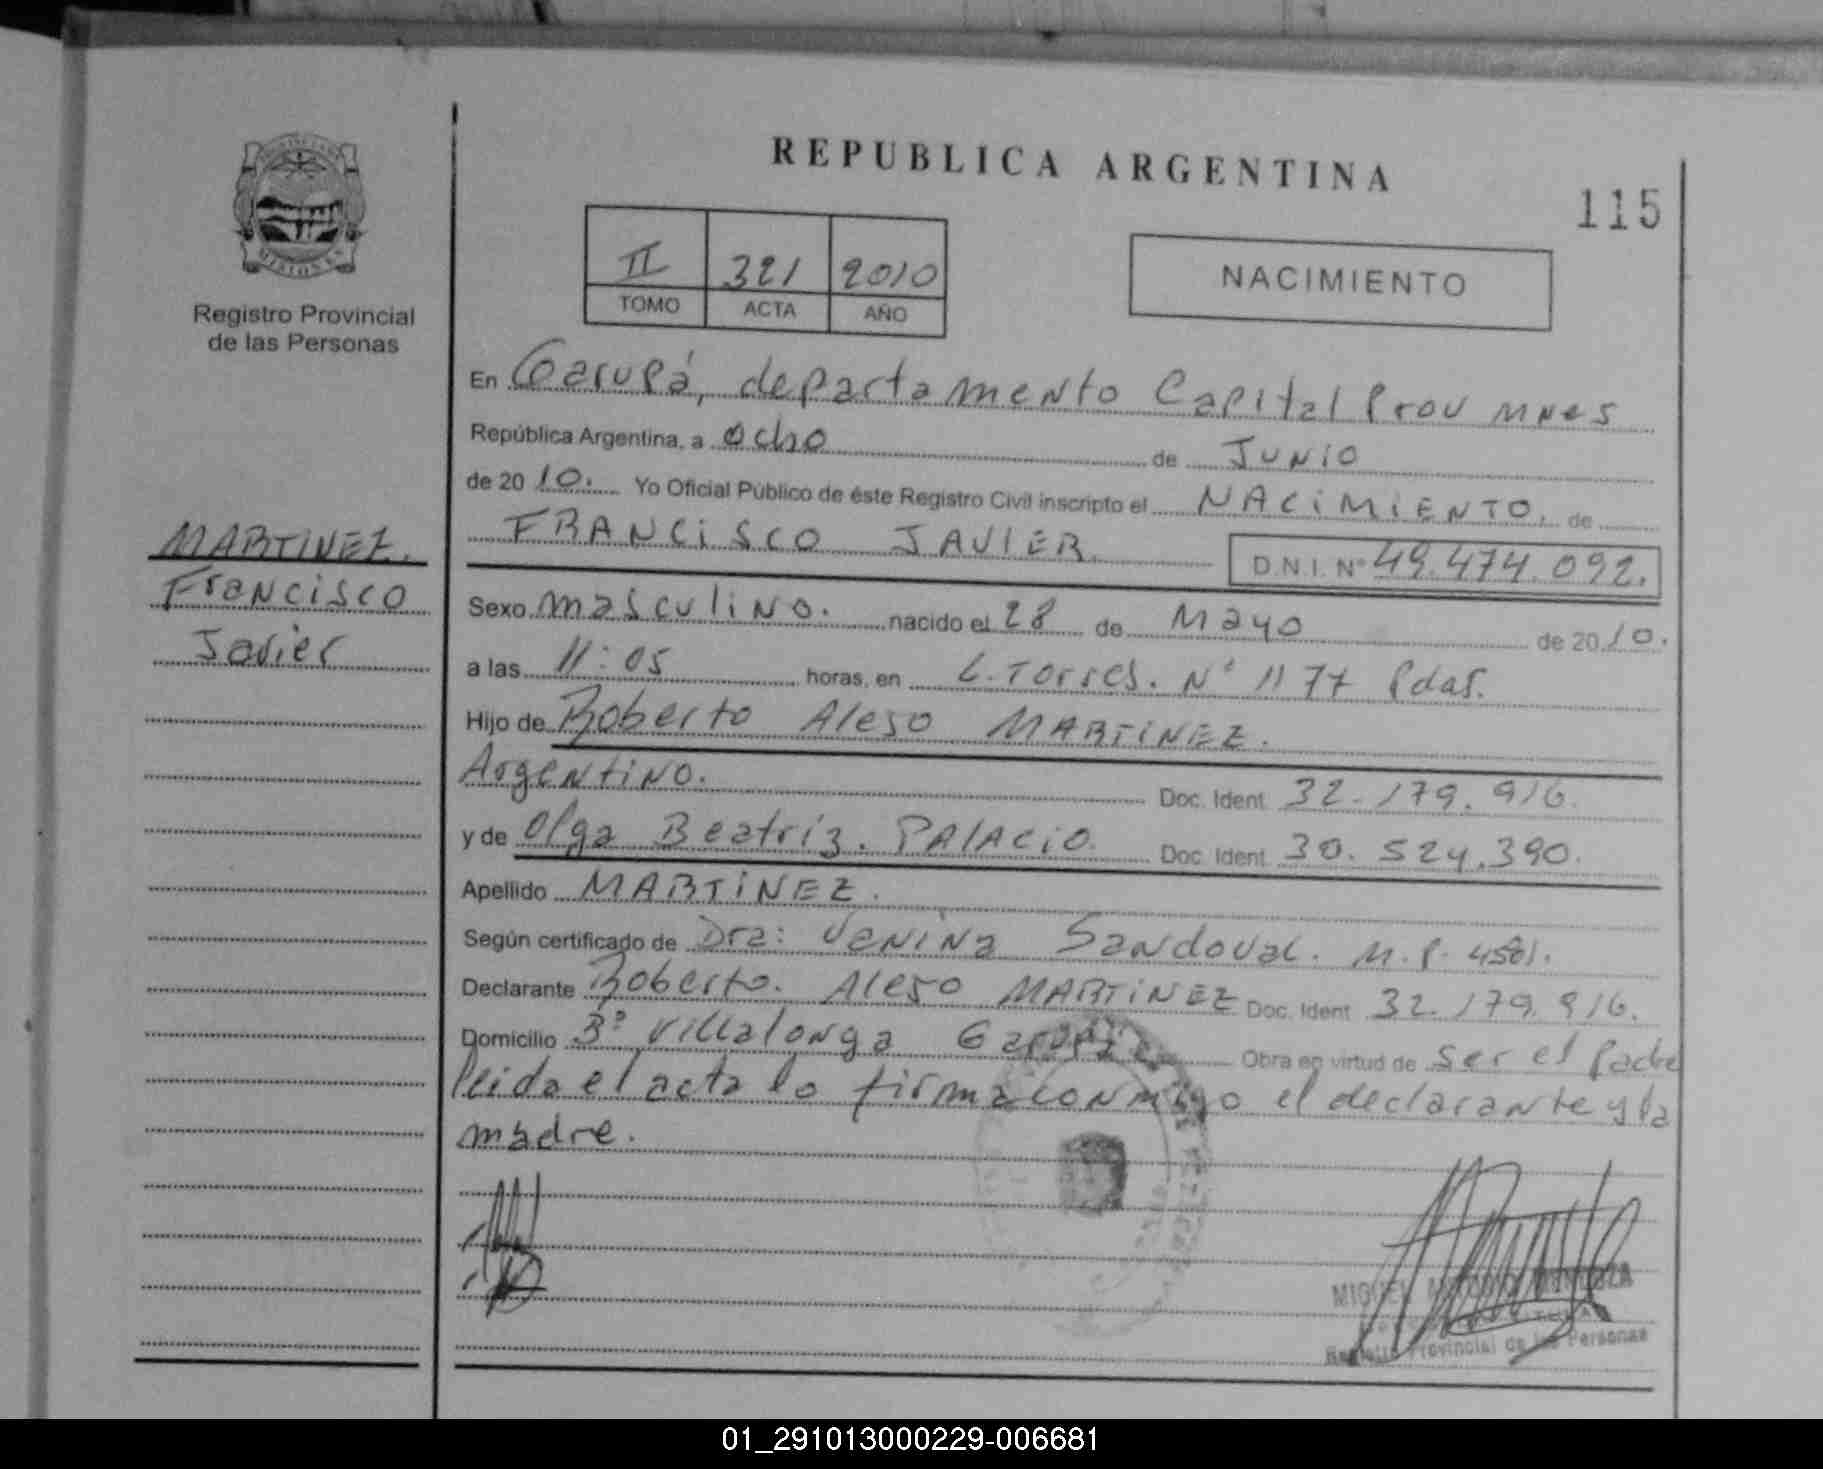 REPUBLICA ARGENTINA
115
PROVINCIA DE
MISIONES
Registro Provincial
de las Personas
II 321 2010
TOMO ACTA AÑO
NACIMIENTO
En Garupá, departamento Capital Prov Mnes
República Argentina, a ocho de Junio
de 20 10. Yo Oficial Público de éste Registro Civil inscripto el NACIMIENTO. de
FRANCISCO JAVIER. D.N.I. Nº 49.474.092.
MARTINEZ.
Francisco
Javier
Sexo masculino. nacido el 28 de Mayo de 20 10.
a las 11:05 horas, en L. Torres. Nº 1177 Pdas.
Hijo de Roberto Aleso MARTINEZ.
Argentino. Doc. Ident. 32.179.916.
y de Olga Beatríz. PALACIO. Doc. Ident. 30.524.390.
Apellido MARTINEZ.
Según certificado de Dra: Sandoval. M.P.
Declarante Roberto. Aleso MARTINEZ Doc. Ident. 32.179.916.
Domicilio Bº Villalonga Garupá Obra en virtud de ser el Padre
leida el acta lo firma conmigo el declarante y la
madre.
MIGUEL MENDOZA
Registro Provincial de las Personas
01_291013000229-006681